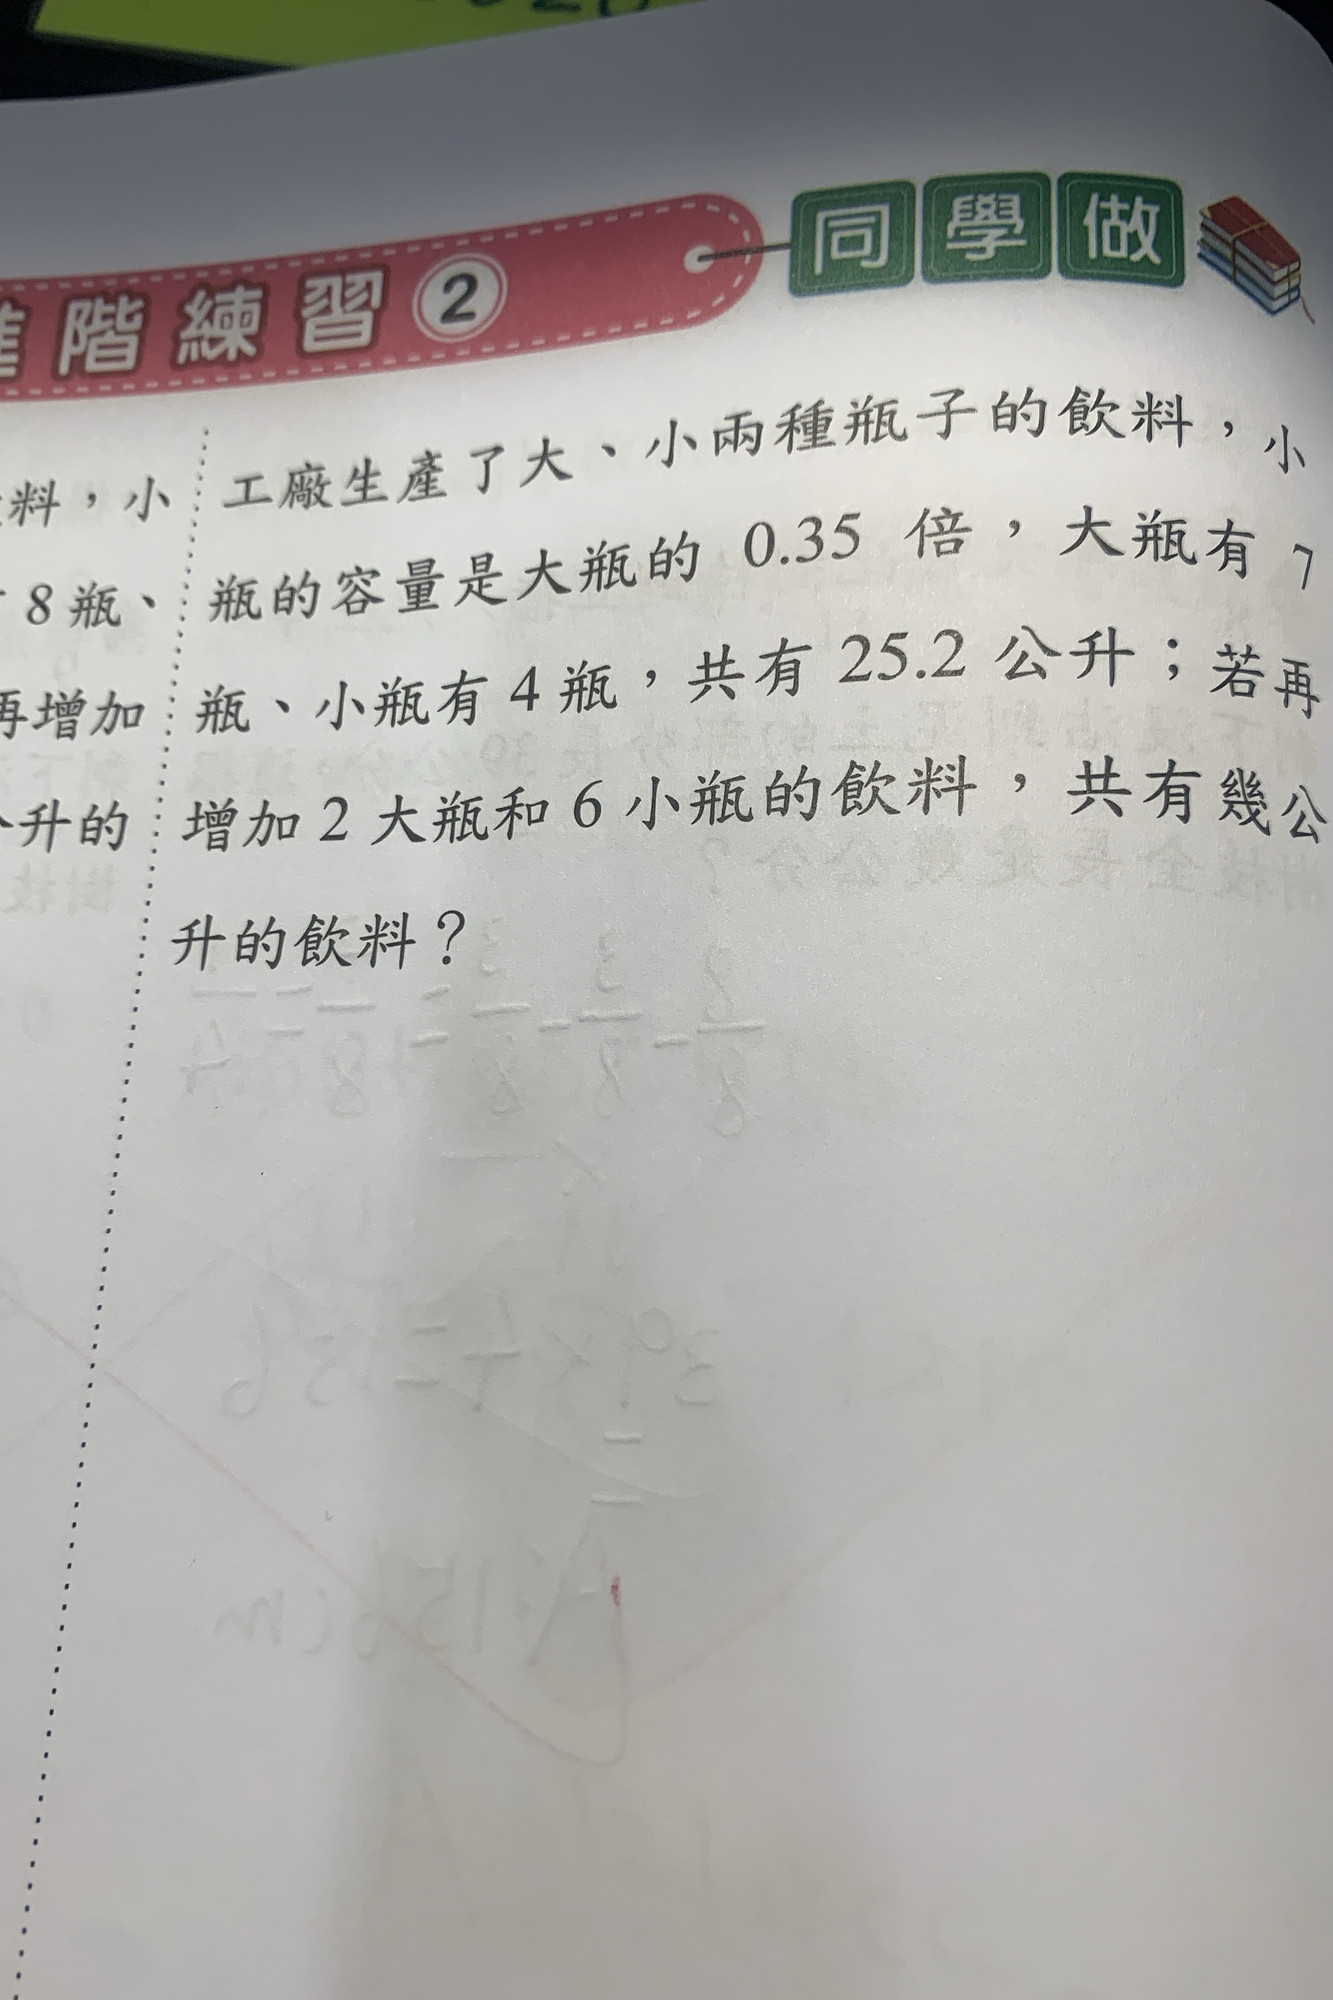 階練習2
同學做
料，小
8瓶、
再增加
升的
工廠生產了大、小兩種瓶子的飲料，小
瓶的容量是大瓶的 0.35 倍，大瓶有 7
瓶、小瓶有 4 瓶，共有 25.2 公升；若再
增加 2 大瓶和 6 小瓶的飲料，共有幾公
升的飲料？